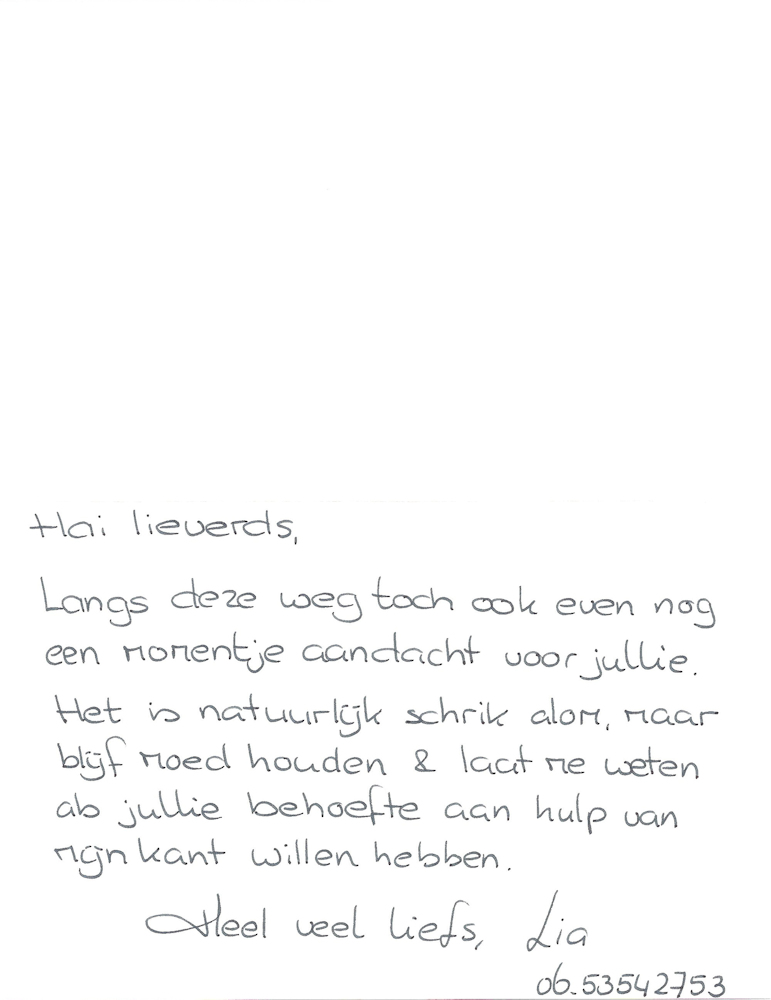 Hai lieverds,
Langs deze weg toch ook even nog
een momentje aandacht voor jullie.
Het is natuurlijk schrik alom, maar
blijf moed houden & laat me weten
ab jullie behoefte aan hulp van
mijn kant willen hebben.
Heel veel liefs, Lia
06.53542753